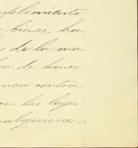 mplimiento
bienes, ha
de la ma
de honor,
nca contra
n las leyes
cualquiera